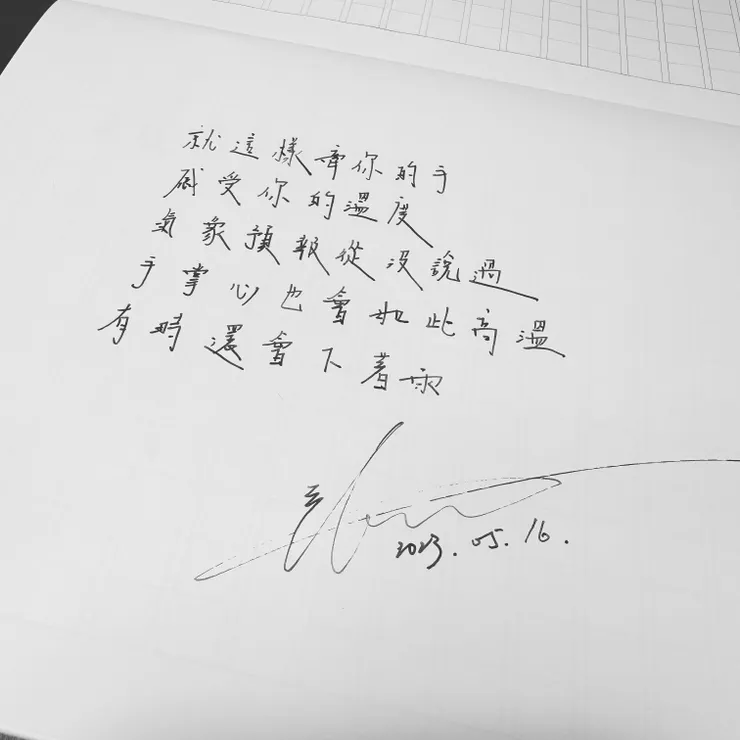 就這樣牽你的手
感受你的溫度
氣象預報從沒說過
手掌心也會如此高溫
有時還會下著雨
2023.05.16.